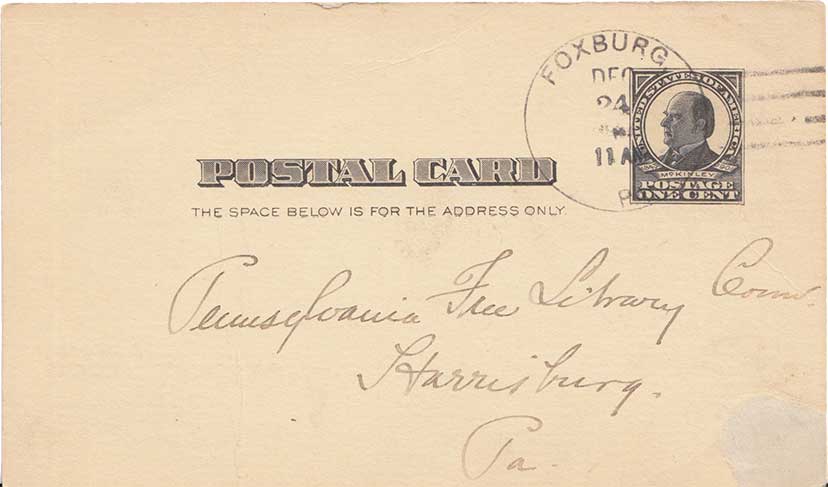 FOXBURG
DEC
24
11 AM
PA
UNITED STATES OF AMERICA
McKINLEY
POSTAGE
ONE CENT
POSTAL CARD
THE SPACE BELOW IS FOR THE ADDRESS ONLY.
Pennsylvania Free Library Comm.
Harrisburg.
Pa.